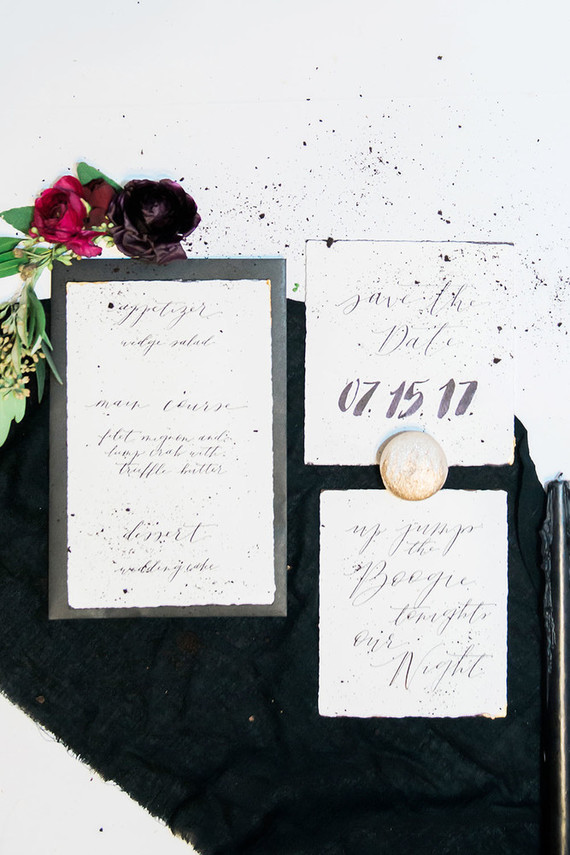 appetizer
widge salad
main course
filet mignon and
lump crab with
truffle butter
dessert
wedding cake
save the
Date
07.15.17.
up jump
the
Boogie
tonights
our
Night